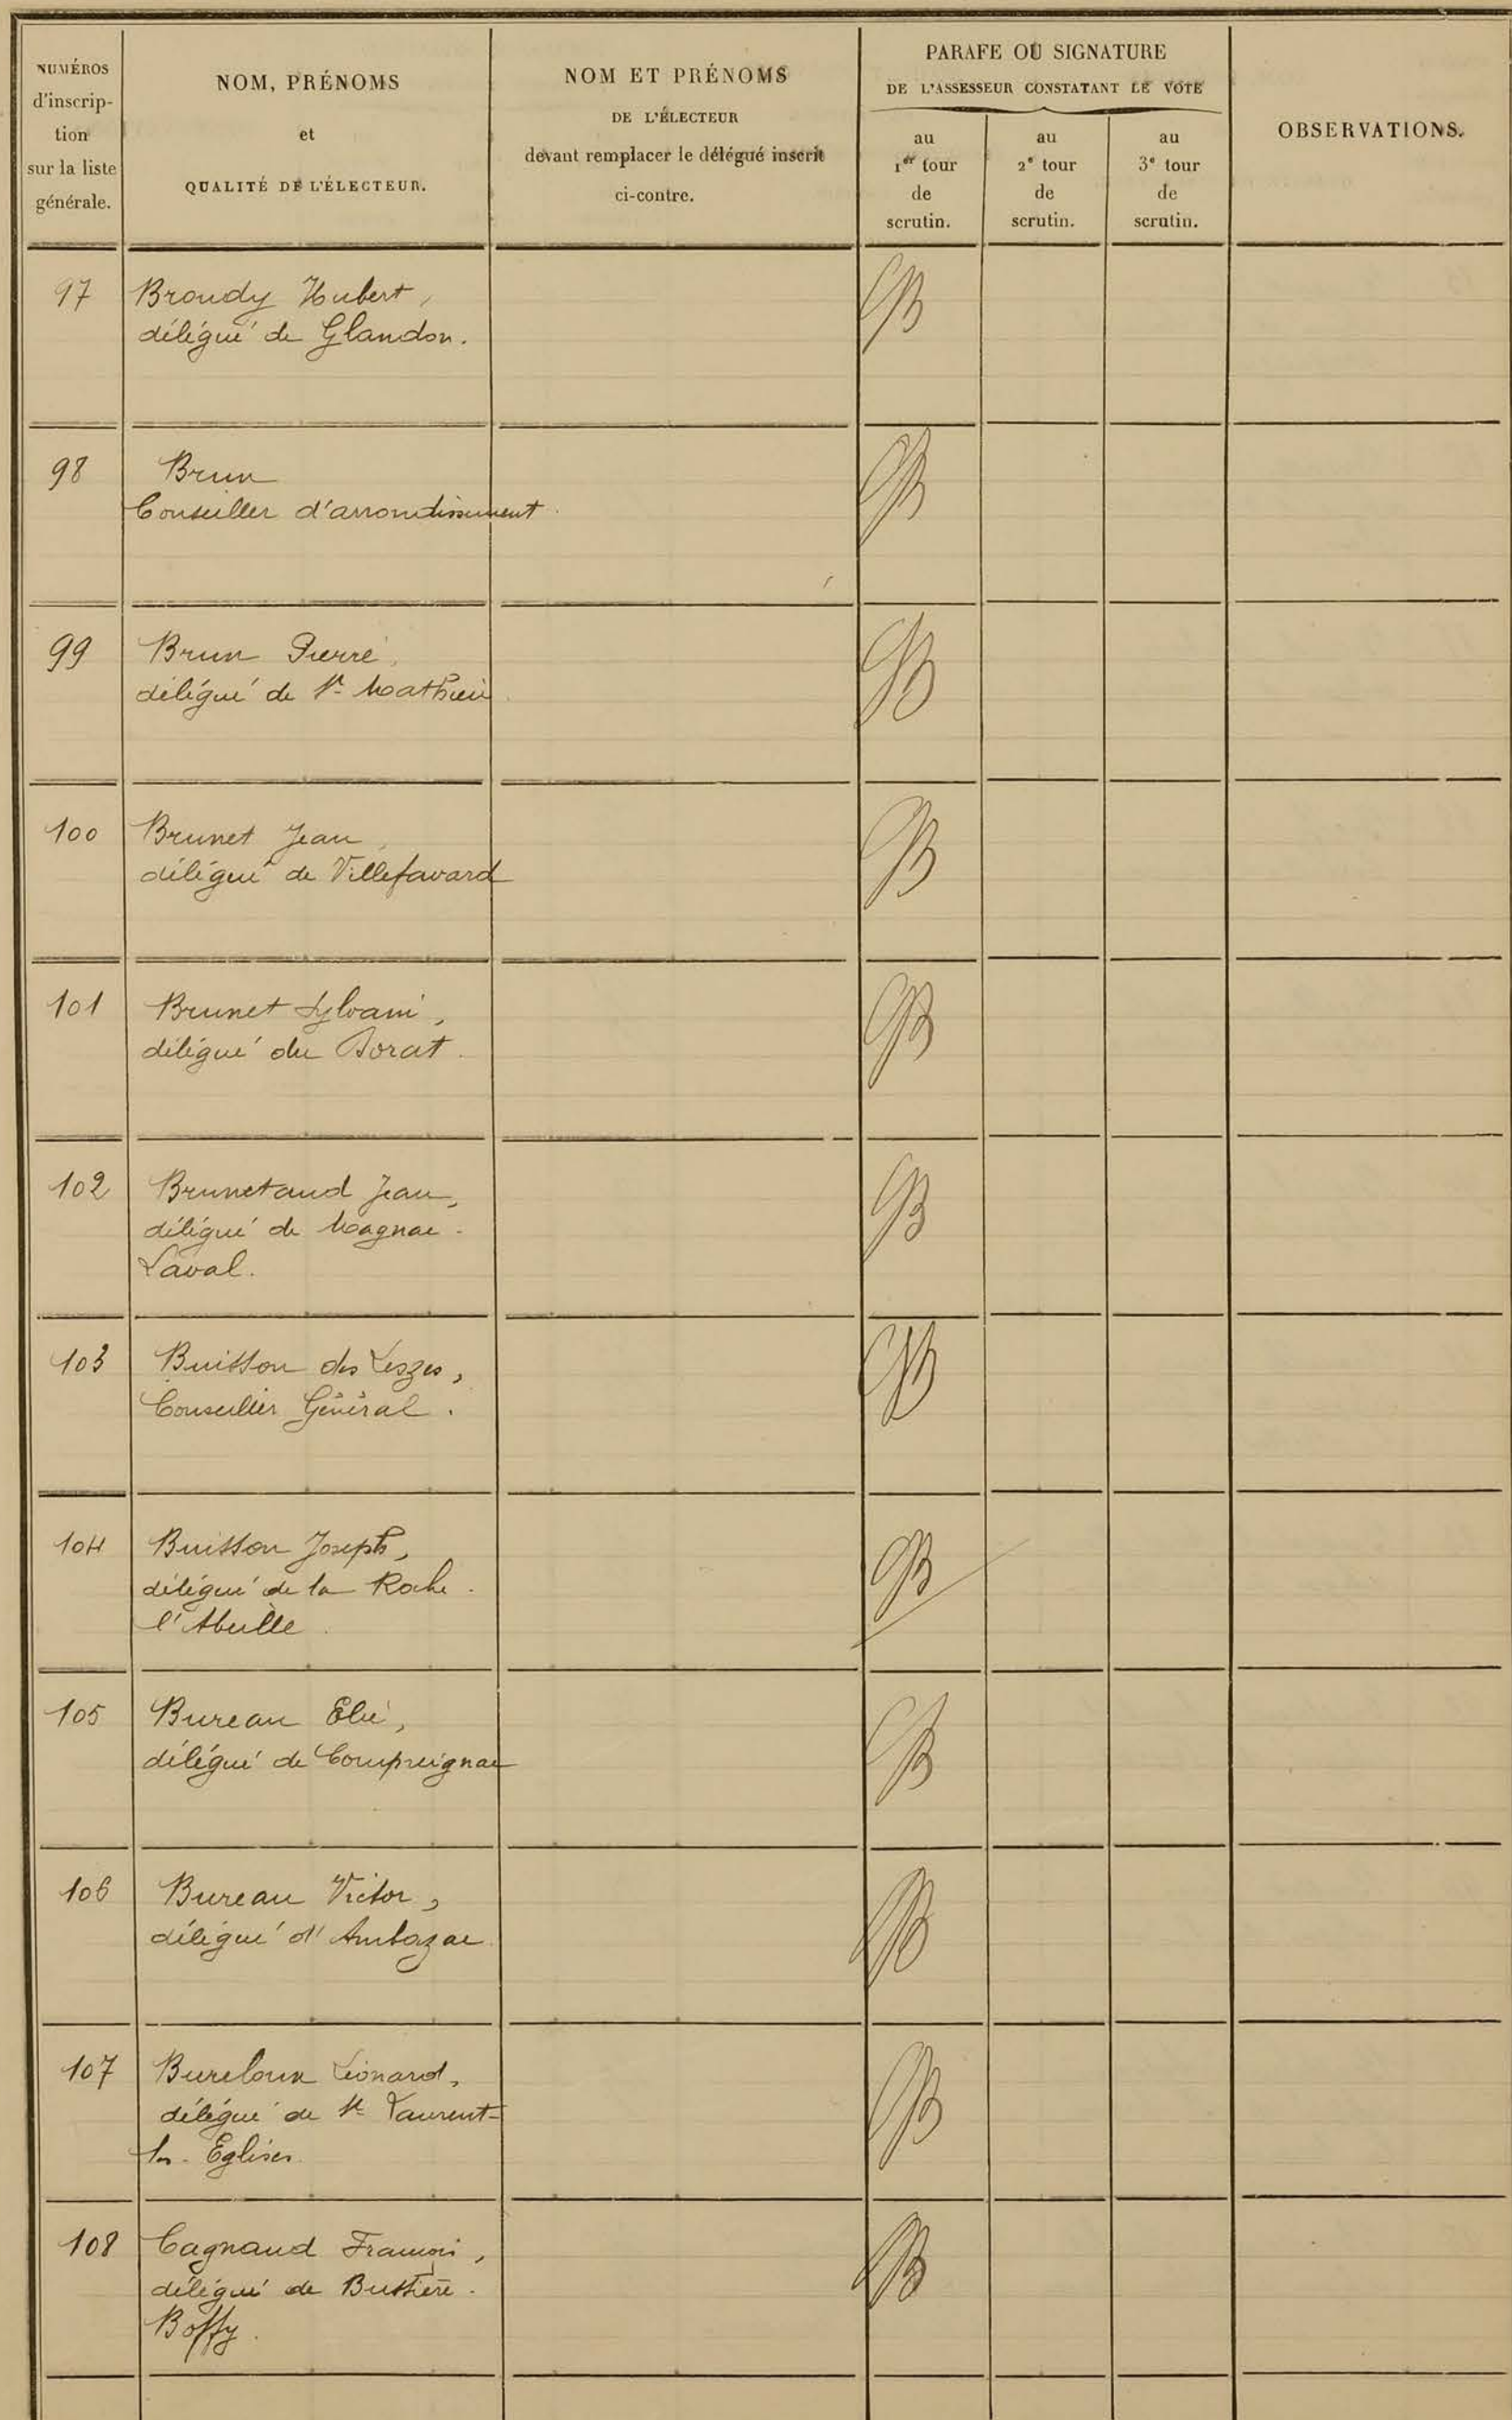 NUMÉROS
d'inscrip-
tion
sur la liste
générale.
NOM, PRÉNOMS
et
QUALITÉ DE L'ÉLECTEUR.
NOM ET PRÉNOMS
DE L'ÉLECTEUR
devant remplacer le délégué inscrit
ci-contre.
PARAFE OU SIGNATURE
DE L'ASSESSEUR CONSTATANT LE VOTE
au
1er tour
de
scrutin.
au
2e tour
de
scrutin.
au
3e tour
de
scrutin.
OBSERVATIONS.
97 Broudy Hubert,
délégué de Glandon.
98 Brun
Conseiller d'arrondissement.
99 Brun Pierre,
délégué de St Mathieu
100 Brunet Jean,
délégué de Villefavard
101 Brunet Sylvain,
délégué du Dorat.
102 Brunetaud Jean,
délégué de Magnac-
Laval.
103 Buisson des Lezes,
Conseiller Général.
104 Buisson Joseph,
délégué de la Roche-
l'Abeille.
105 Bureau Elie,
délégué de Compreignac
106 Bureau Victor,
délégué d'Ambazac
107 Bureloux Léonard,
délégué de St Laurent-
les-Eglises.
108 Cagnaud François,
délégué de Bussière-
Boffy.